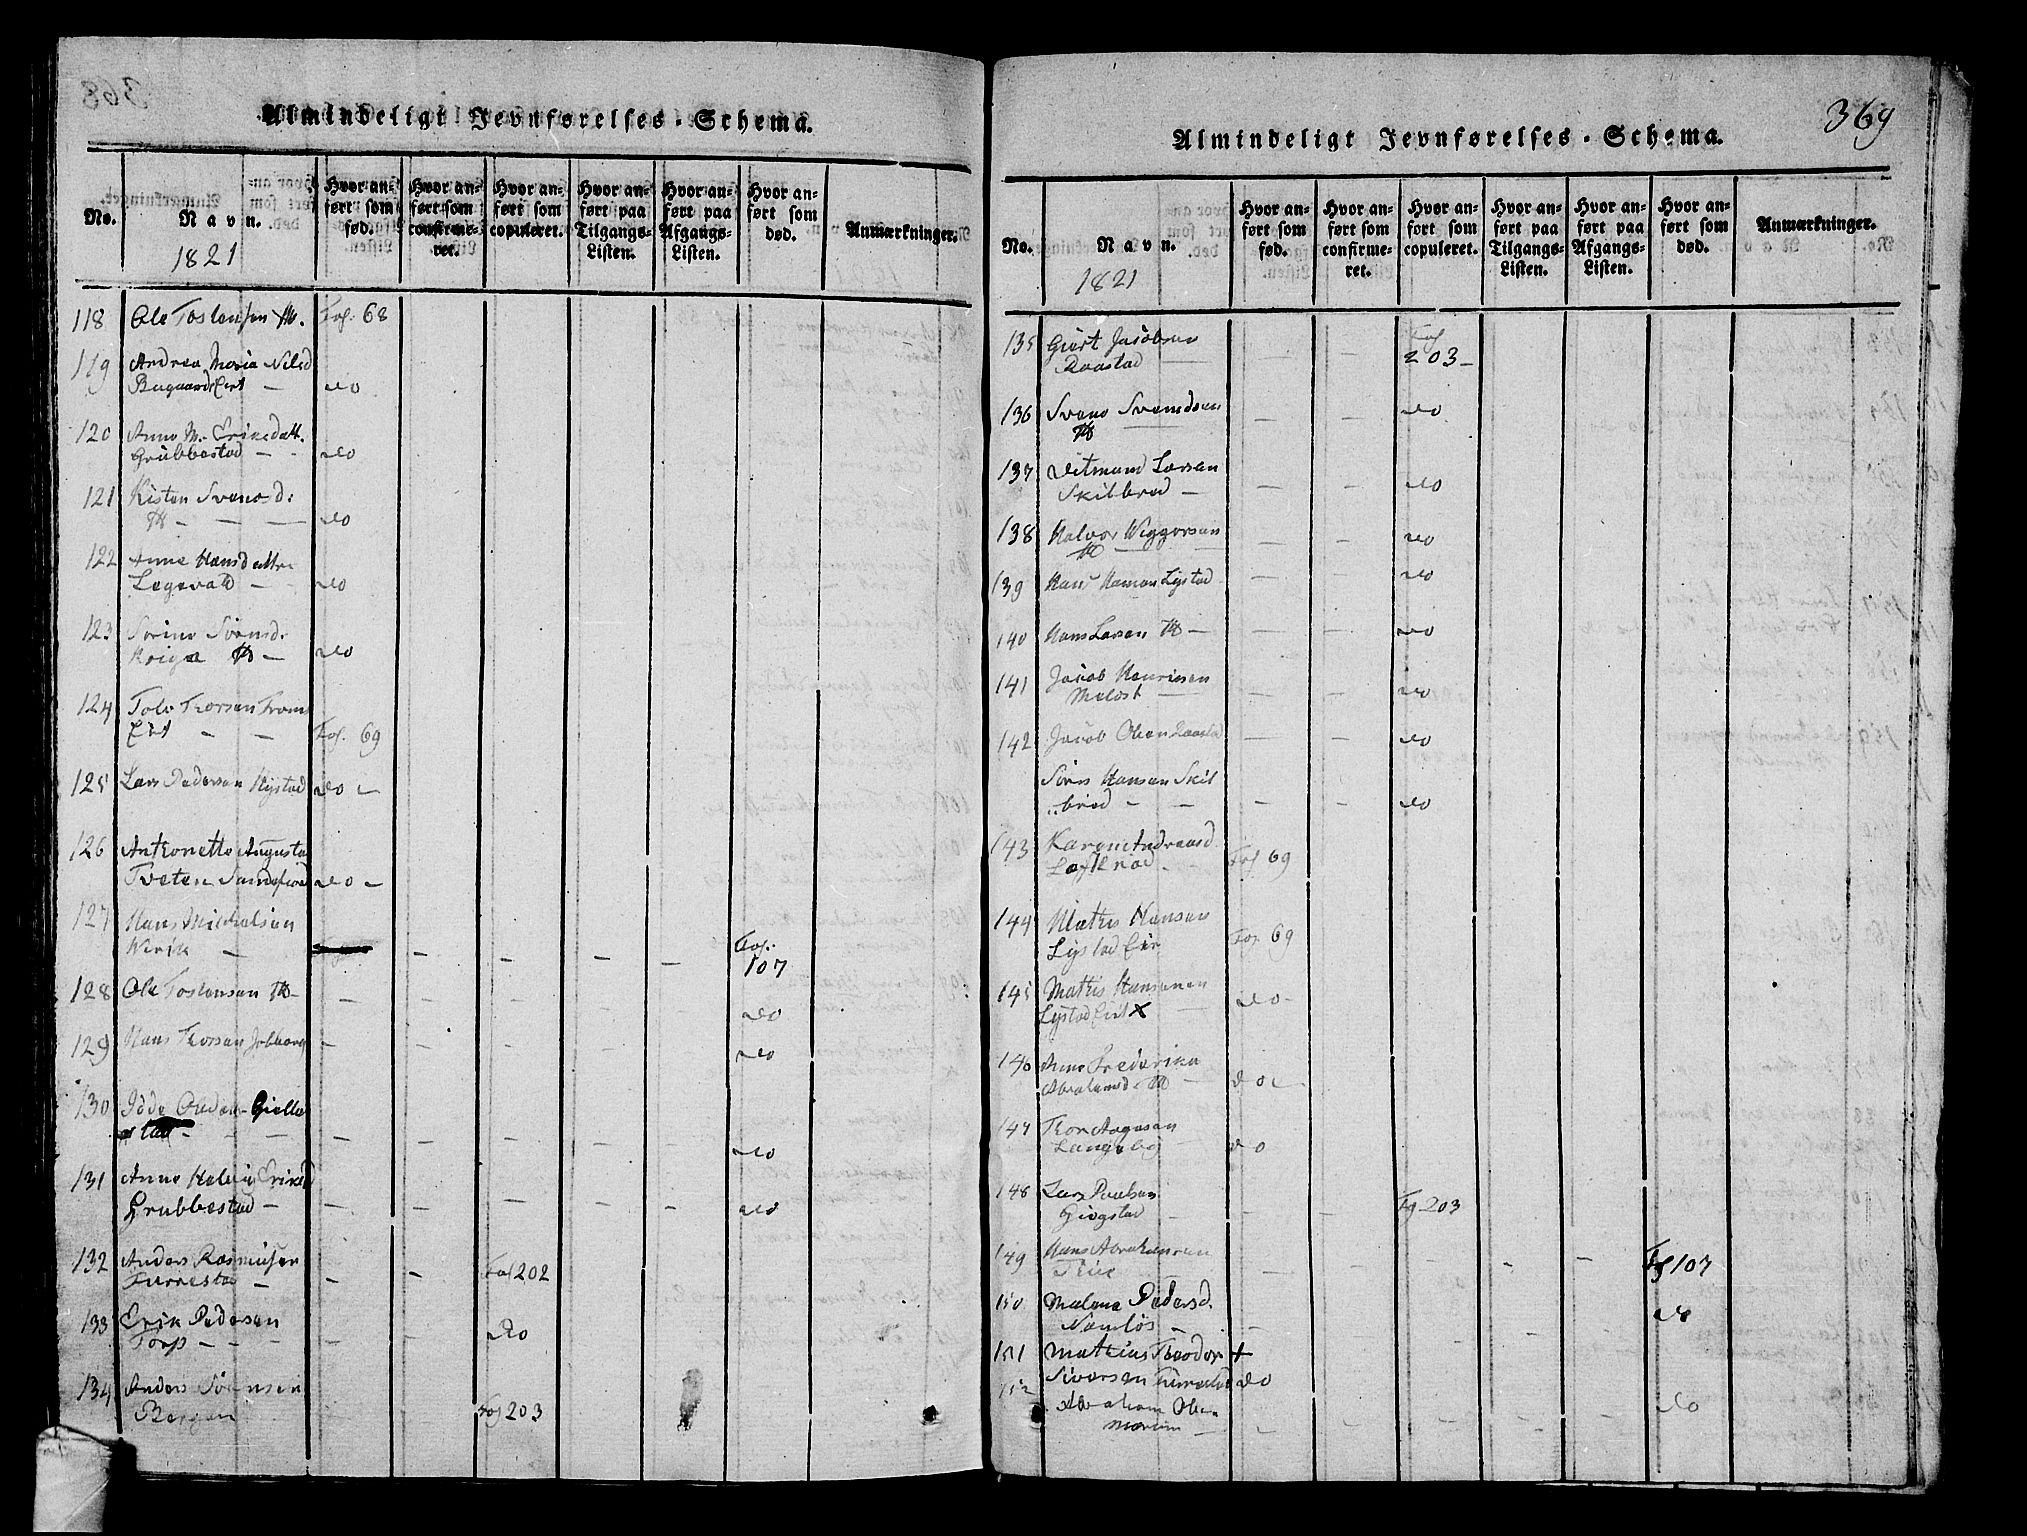 368
Almindeligt Jevnførelses-Schema.
No.
Navn.
1821
Hvor anført som fød.
Hvor anført som confirmeret.
Hvor anført som copuleret.
Hvor anført paa Tilgangs-Listen.
Hvor anført paa Afgangs-Listen.
Hvor anført som død.
Anmærkninger.
118 Ole Tostensen Fol. 68
119 Andrea Maria Nilsd
Bugaard Eiet - do
120 Anne M. Eriksdatt.
Grubbestad - - do
121 Kisten Svensd:
- - - do
122 Anne Hansdattr
Legevald - do
123 Sørine Sörensd.
- do
124 Thorsen
Eiet - - Fol. 69
125 Lars Pedersen Hystad do -
126 Antonette Augusta
Tveten Sandefiord do -
127 Hans Mickelsen
Virik - - - - - Fol.
107
128 Ole Tostensen - - - - - do
129 Hans Thorsen - - - - - do
130 Olsdatt. Gielle
stad - - - - - do
131 Anne Helvig Eriksd
Grubbestad - - - - - do
132 Anders Rasmusen
Furrestad - - - Fol 202
133 Erik Pedersen
Torp - - - - do
134 Anders Sörensen
Bergan Fol 203
369
Almindeligt Jevnførelses-Schema.
No.
Navn.
1821
Hvor anført som fød.
Hvor anført som confirmeret.
Hvor anført som copuleret.
Hvor anført paa Tilgangs-Listen.
Hvor anført paa Afgangs-Listen.
Hvor anført som død.
Anmærkninger.
135 Giert Jacobsen Fol
Raastad - - - 203 -
136 Svend Svendsen - - do
137 Ditmand Larsen
Skilbred - - - do
138 Halvor Wiggersen - - do
139 Hans Hansen Lystad - - do
140 Hans Larsen - - - do
141 Jacob Henriksen
Melöst - - - do
142 Jacob Olsen Raastad - - do
Sören Hansen Skil
bred - - - - do
143 Karen Andreasd
- Fol 69
144 Mathis Hansen
Lystad Eie Fol. 69
145 Mathis Hansen
Lystad Eiet x do -
146 Anne Frederikke
Abrahamsd. - do -
147 Thor Aagesen
Langeby - do
148 Lars Paulsen
Giogstad - - - Fol 203
149 Hans Abrahamsen
- - - - - Fol 107
150 Malene Pedersd.
Namløs - - - - - do
151 Mathias Theodor +
Siversen Furrestad do
152 Abraham Olsen
- - - - - do